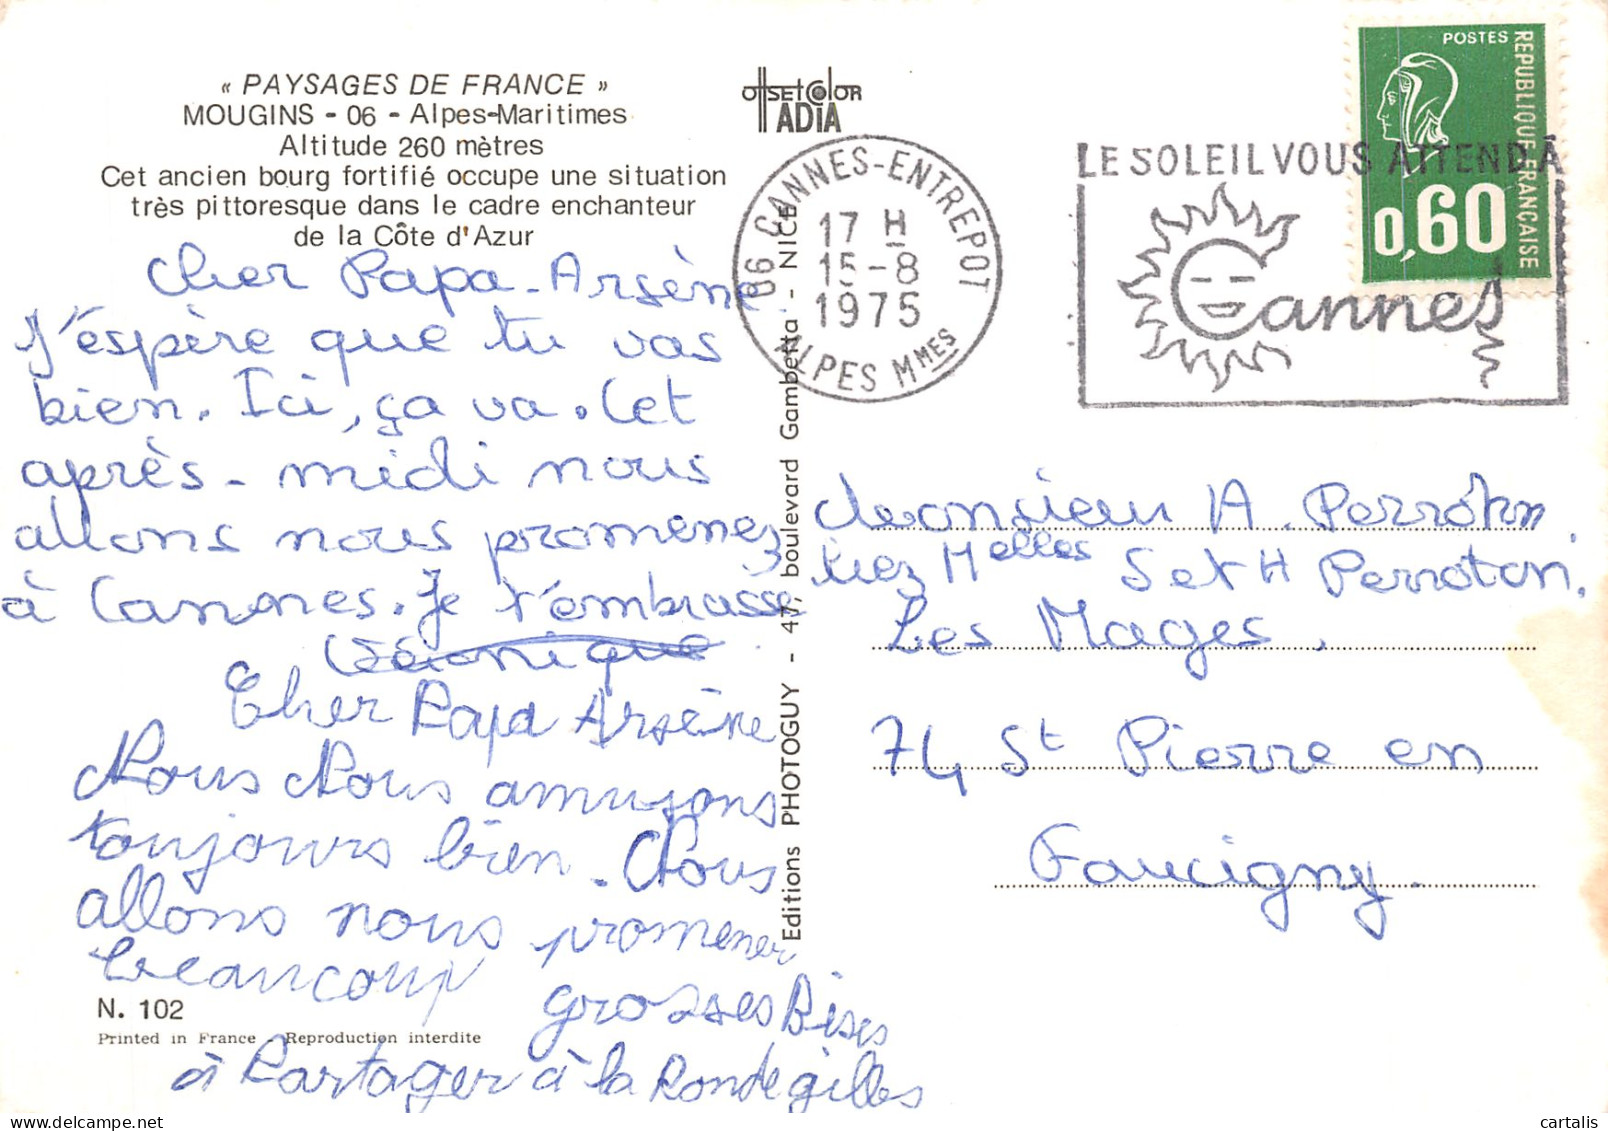 « PAYSAGES DE FRANCE »
MOUGINS - 06 - Alpes-Maritimes
Altitude 260 mètres
Cet ancien bourg fortifié occupe une situation
très pittoresque dans le cadre enchanteur
de la Côte d'Azur
Cher Papa-Arsène
J'espère que tu vas
bien. Ici, ça va. Cet
après-midi nous
allons nous promenez
à Cannes. Je t'embrasse
Véronique
Cher Papa Arsène
Nous Nous amusons
toujours bien. Nous
allons nous promener
beaucoup
grosses Bises
à Partager à la Ronde gilles
N. 102
Printed in France - Reproduction interdite
OffSEt COlOR
ADIA
Editions PHOTOGUY - 47, boulevard Gambetta - NICE
06 CANNES-ENTREPOT
17 H
15-8
1975
ALPES MMES
LE SOLEIL VOUS ATTEND À
Cannes
POSTES
REPUBLIQUE FRANÇAISE
0,60
Monsieur A. Perroton
chez Melles S et H Perroton.
Les Mages.
74 St Pierre en
Faucigny.
cartalis